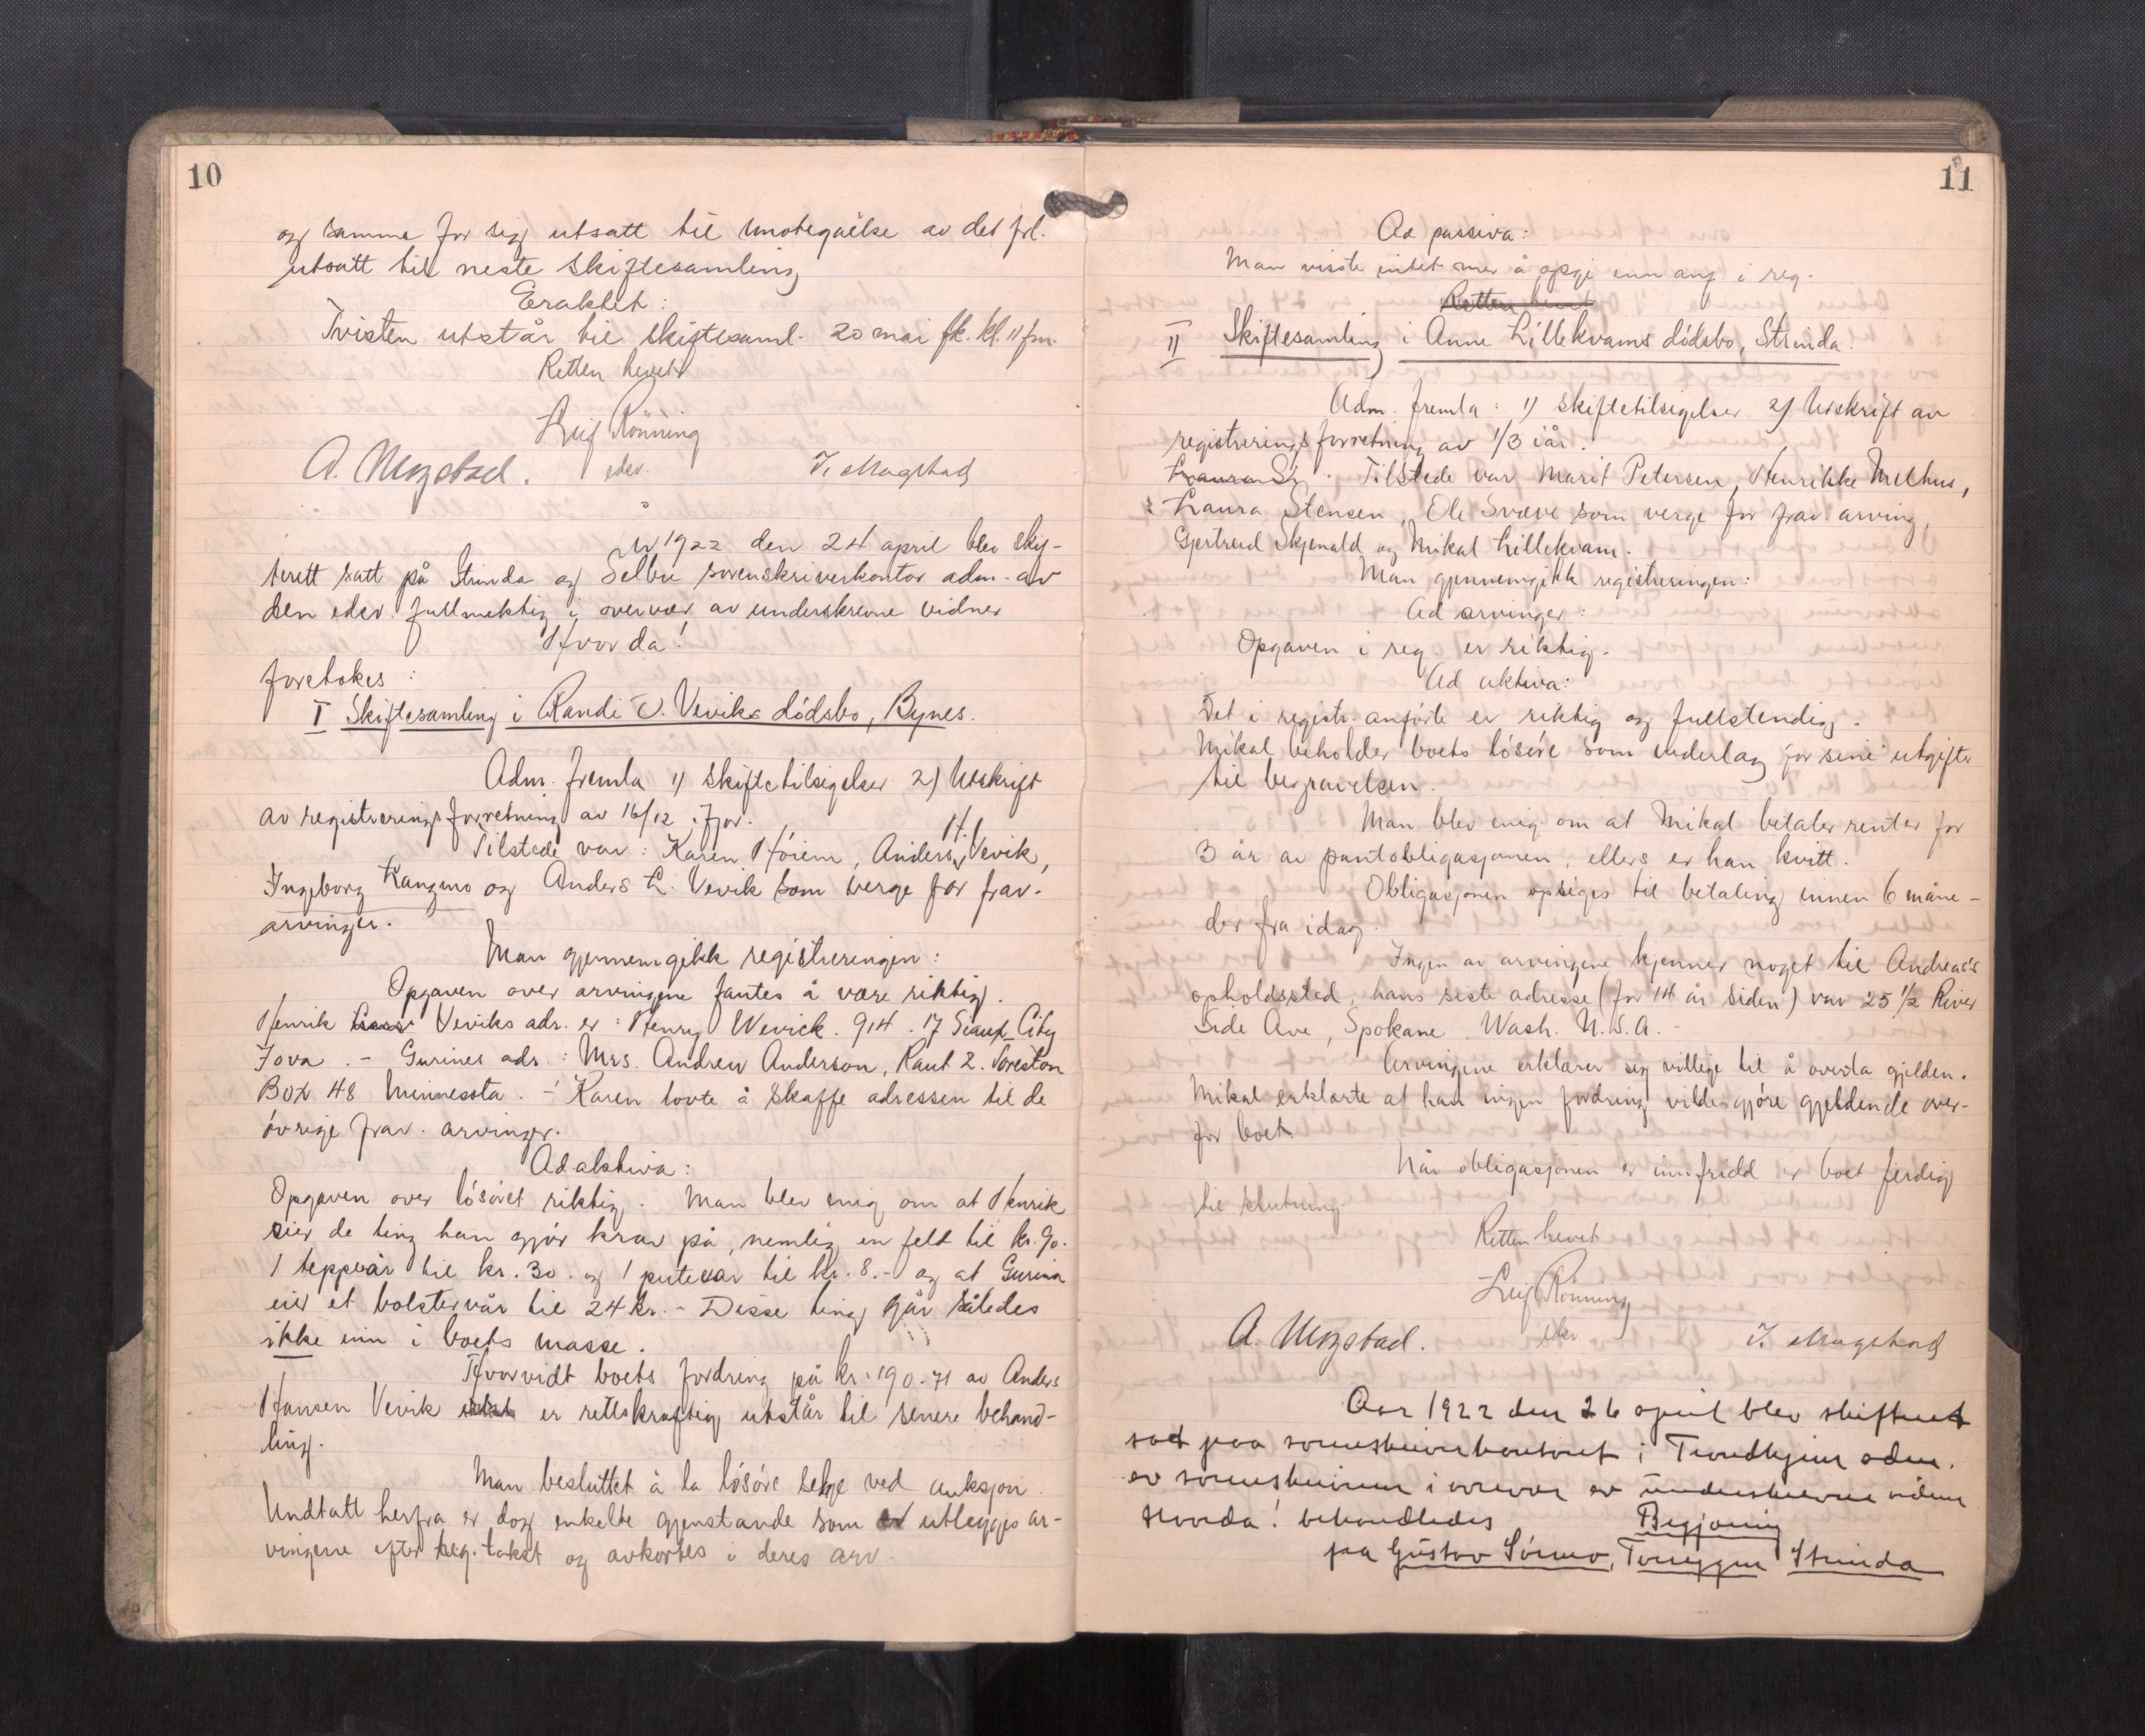 10
og samme for sig utsatt til imotegåelse av det frl.
utsatt til neste skiftesamling
Eraktet:
Tvisten utstår til skiftesaml. 20 mai fk. kl. 11 fm.
Retten hevet
Leif Rönning
A. Mogstad. edsv. J. Magstad
År 1922 den 24 april blev skif-
terett satt på Strinda og Selbu sorenskriverkontor adm. av
den edsv. fullmektig i overvær av underskrevne vidner
Hvorda!
foretokes:
I Skiftesamling i Randi O. Veviks dödsbo, Bynes.
Adm. fremla 1) skiftetilsigelser 2) Utskrift
av registreringsforretning av 16/12 ifjor.
Tilstede var: Karen Höiem, Anders H. Vevik,
Ingeborg Kangmo og Anders L. Vevik som verge for frav.
arvinger.
Man gjennemgikk registreringen:
Opgaven over arvingene fantes å være riktig.
Henrik Veviks adr. er: Henry Wevick. 914. 17 Siaux City
Jova. - Gurines adr.: Mrs. Andrew Anderson, Raut 2. Foreston
Box 48 Minnessta. - Karen lovte å skaffe adressen til de
övrige frav. arvinger.
Ad aktiva:
Opgaven over lösöret riktig. Man blev enig om at Henrik
eier de ting han gjör krav på, nemlig en feld til kr. 90.
1 teppvär til kr. 30. og 1 putevar til kr. 8.- og at Gurina
eier et bolstervår til 24 kr. - Disse ting går således
ikke inn i boets masse.
Hvorvidt boets fordring på kr. 190.71 av Anders
Hansen Vevik er rettskraftig utstår til senere behand-
ling.
Man besluttet å la lösöre selge ved auksjon.
Undtatt herfra er dog enkelte gjenstande som utlegges ar-
vingerne efter reg. takst og avkortes i deres arv.
11
Ad passiva:
Man visste intet mer å opgi enn anf. i reg.
Retten hevet
II Skiftesamling i Anne Lillekvams dödsbo, Strinda.
Adm. fremla: 1) skiftetilsigelser 2) Utskrift av
registreringsforretning av 1/3 iår.
Tilstede var Marit Petersen, Henrikke Melhus,
Laura Stensen, Ole Svæve som verge for frav. arving,
Gjertrud Skjenald og Mikal Lillekvam.
Man gjennemgikk registreringen:
Ad arvinger:
Opgaven i reg. er riktig.
Ad aktiva:
Det i registr. anförte er riktig og fullstendig.
Mikal beholder boets lösöre som vederlag for sine utgifter
til begravelsen.
Man blev enig om at Mikal betaler renter for
3 år av pantobligasjonen, ellers er han kvitt.
Obligasjonen opsiges til betaling innen 6 måne-
der fra idag.
Ingen av arvingene kjenner noget til Andreas's
opholdssted, hans siste adresse (for 14 år siden) var 25 1/2 River
Side Ave, Spokane Wash. U.S.A. -
Arvingene erklærer sig villige til å overta gjelden.
Mikal erklærte at han ingen fordring vilde gjöre gjeldende over-
for boet.
Når obligasjonen er innfridd er boet ferdig
til slutning.
Retten hevet
Leif Rönning
edsv.
A. Mogstad. J. Magstad
Aar 1922 den 26 april blev skifteret
sat paa sorenskriverkontoret i Trondhjem adm.
av sorenskriveren i overvær av underskrevne vidner
Hvorda! behandledes Begjæring
fra Gustav Sörmo, Strinda